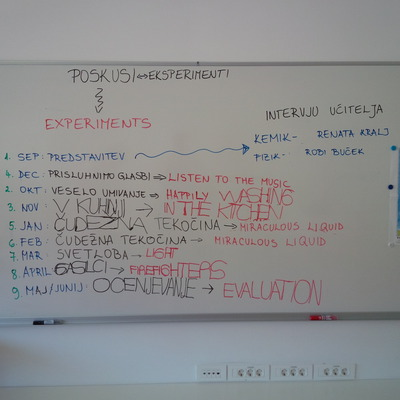 POSKUSI ↔ EKSPERIMENTI
EXPERIMENTS
INTERVJU UČITELJA
KEMIK- RENATA KRALJ
FIZIK- ROBI BUČEK
1. SEP: PREDSTAVITEV
4. DEC: PRISLUHNIMO GLASBI → LISTEN TO THE MUSIC
2. OKT: VESELO UMIVANJE → HAPPILY WASHING
3. NOV: V KUHINJI → IN THE KITCHEN
5. JAN: ČUDEŽNA TEKOČINA → MIRACULOUS LIQUID
6. FEB: ČUDEŽNA TEKOČINA → MIRACULOUS LIQUID
7. MAR: SVETLOBA → LIGHT
8. APRIL: GASILCI → FIREFIGHTERS
9. MAJ/JUNIJ: OCENJEVANJE → EVALUATION